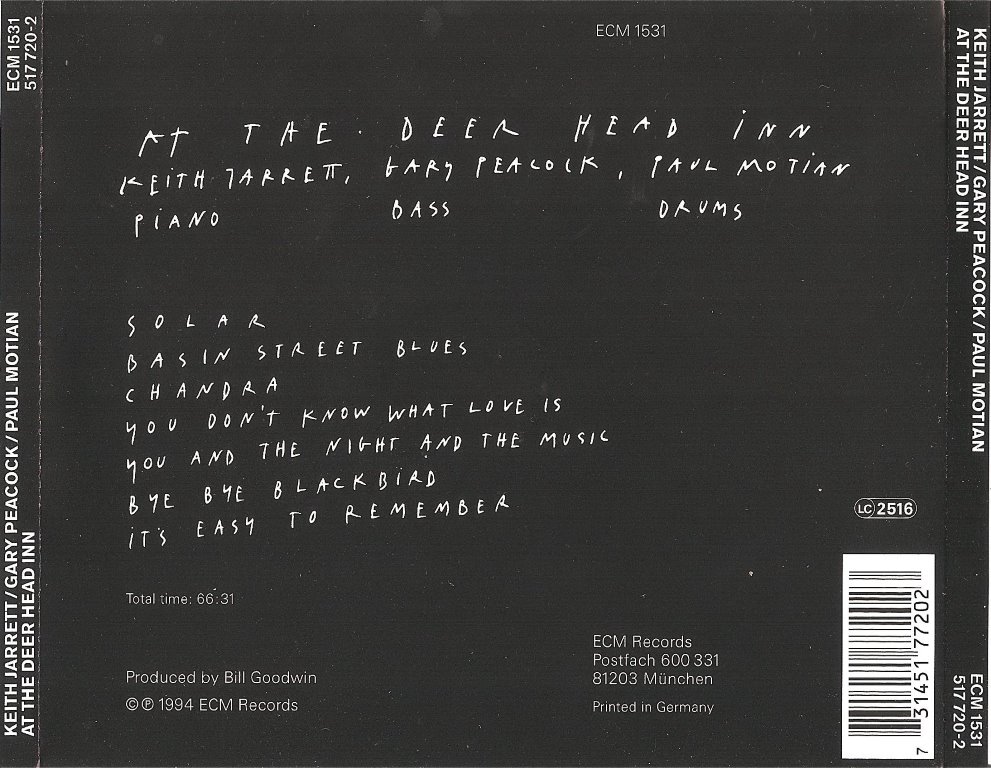 ECM 1531
517 720-2
KEITH JARRETT/GARY PEACOCK/PAUL MOTIAN
AT THE DEER HEAD INN
ECM 1531
AT THE DEER HEAD INN
KEITH JARRETT, GARY PEACOCK, PAUL MOTIAN
PIANO BASS DRUMS
SOLAR
BASIN STREET BLUES
CHANDRA
YOU DON'T KNOW WHAT LOVE IS
YOU AND THE NIGHT AND THE MUSIC
BYE BYE BLACKBIRD
IT'S EASY TO REMEMBER
Total time: 66:31
Produced by Bill Goodwin
©℗ 1994 ECM Records
ECM Records
Postfach 600 331
81203 München
Printed in Germany
LC 2516
7 31451 77202
KEITH JARRETT/GARY PEACOCK/PAUL MOTIAN
AT THE DEER HEAD INN
ECM 1531
517 720-2